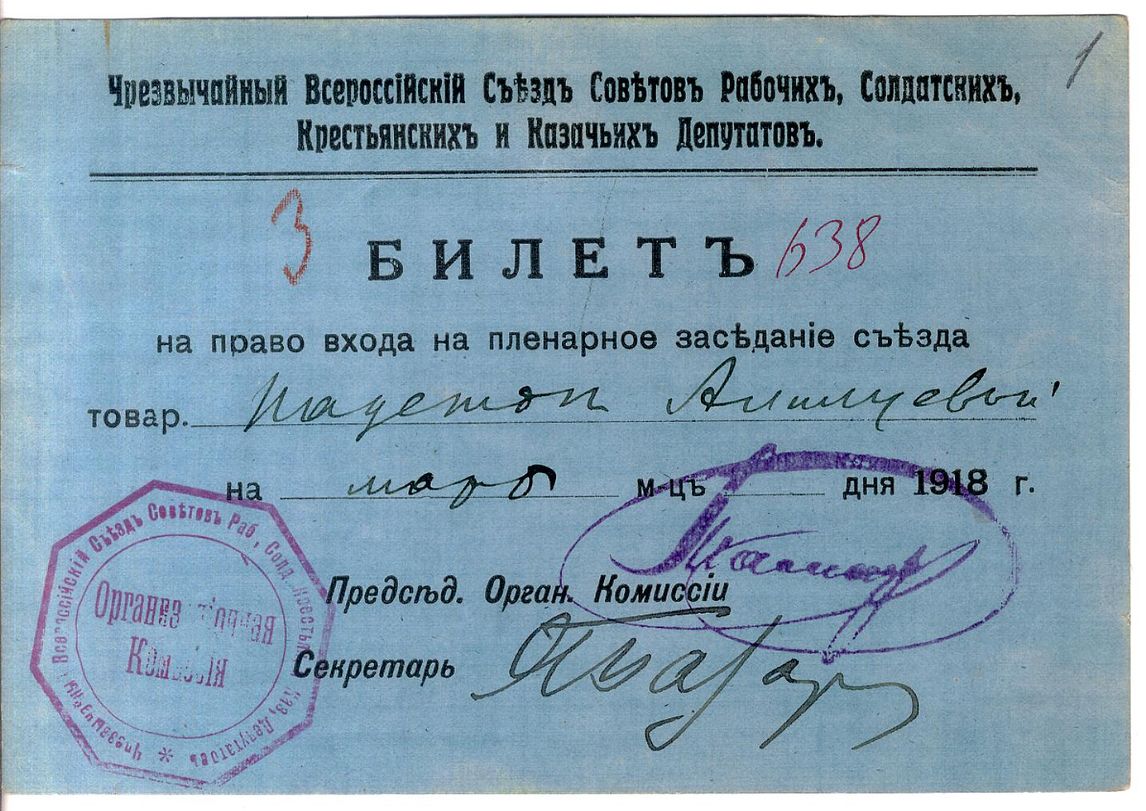 1
Чрезвычайный Всероссійскій Съѣздъ Совѣтовъ Рабочихъ, Солдатскихъ,
Крестьянскихъ и Казачьихъ Депутатовъ.
3 БИЛЕТЪ 638
на право входа на пленарное засѣданіе съѣзда
товар. Аллилуевой
на мартъ м-цъ дня 1918 г.
Предсѣд. Орган. Комиссіи
Секретарь
Чрезвычайный Всероссійскій Съѣздъ Совѣтовъ Раб., Солд., Крестья Каз. Депутатовъ
Организ ціонная
Комиссія